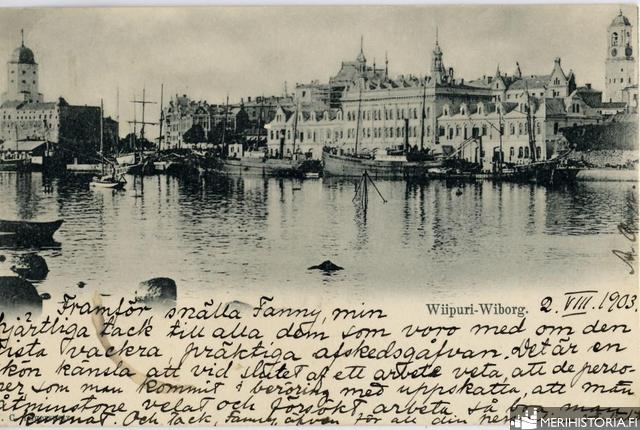 Wiipuri-Wiborg.
2. VIII. 1903.
Framför snälla Fanny, min
hjärtliga tack till alla dem som voro med om den
sista vackra, präktiga afskedsgåfvan. Det är en
skön känsla att vid slutet af ett arbete veta, att de perso-
ner som man kommit i beröring med uppskatta, att man
åtminstone velat och försökt arbeta så
kunnat. Och tack, Fanny, även för all din
MERIHISTORIA.FI